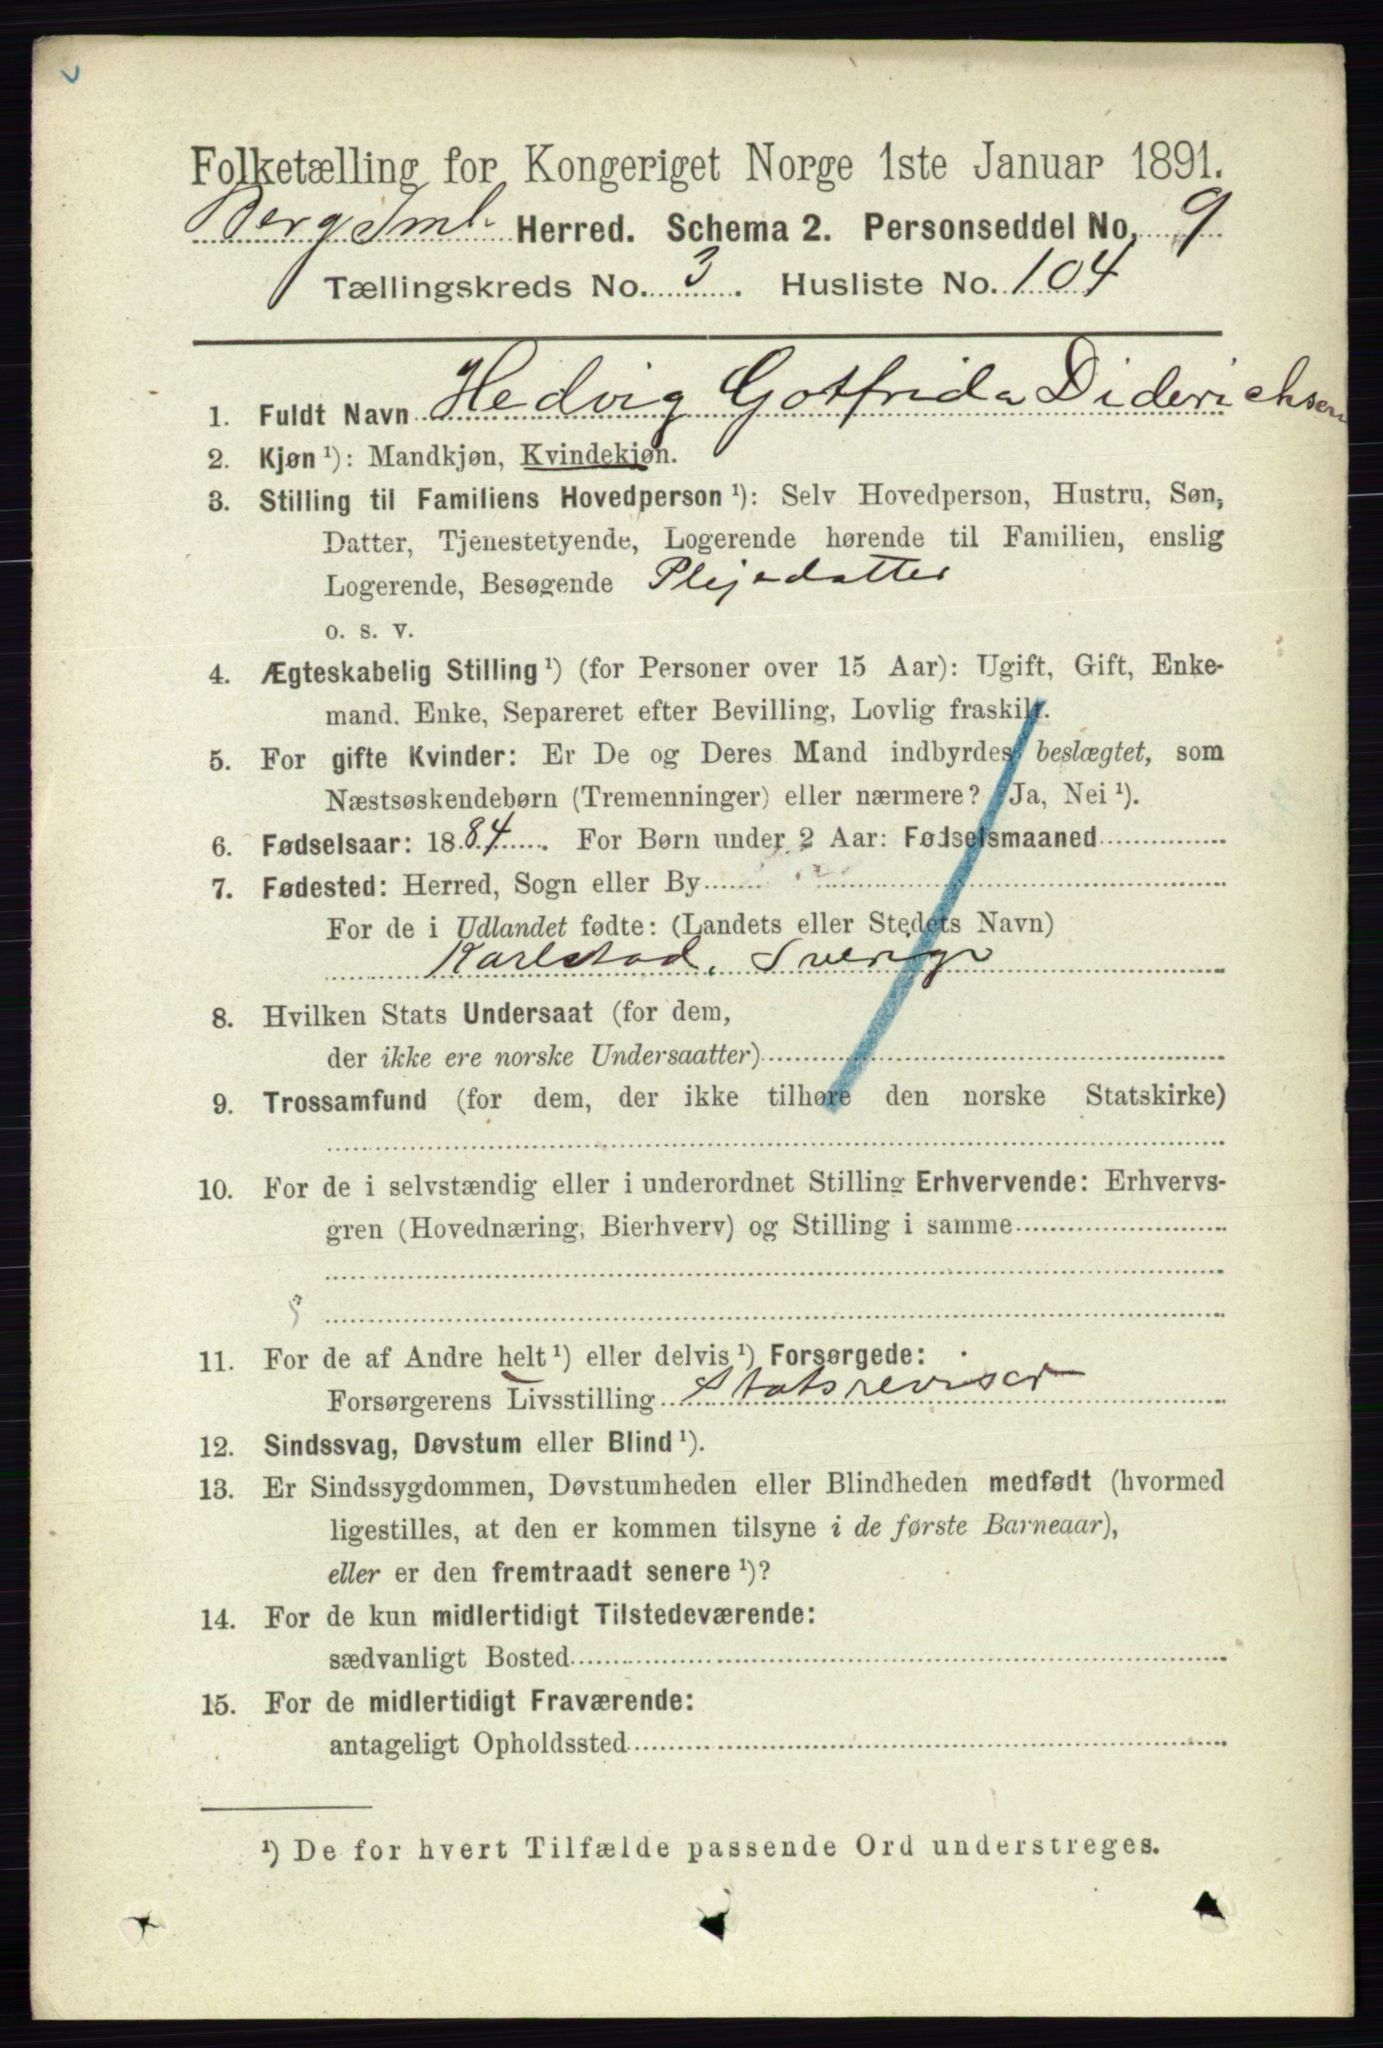 Folketælling for Kongeriget Norge 1ste Januar 1891.
Berg Sml. Herred. Schema 2. Personseddel No. 9
Tællingskreds No. 3. Husliste No. 104
1. Fuldt Navn Hedvig Gotfrida Diderichsen
2. Kjøn ¹): Mandkjøn, Kvindekjøn.
3. Stilling til Familiens Hovedperson ¹): Selv Hovedperson, Hustru, Søn,
Datter, Tjenestetyende, Logerende hørende til Familien, enslig
Logerende, Besøgende Plejedatter
o. s. v.
4. Ægteskabelig Stilling ¹) (for Personer over 15 Aar): Ugift, Gift, Enke-
mand. Enke, Separeret efter Bevilling, Lovlig fraskilt.
5. For gifte Kvinder: Er De og Deres Mand indbyrdes beslægtet, som
Næstsøskendebørn (Tremenninger) eller nærmere? Ja, Nei ¹).
6. Fødselsaar: 1884. For Børn under 2 Aar: Fødselsmaaned
7. Fødested: Herred, Sogn eller By
For de i Udlandet fødte: (Landets eller Stedets Navn)
Karlstad, Sverige
8. Hvilken Stats Undersaat (for dem,
der ikke ere norske Undersaatter)
9. Trossamfund (for dem, der ikke tilhøre den norske Statskirke)
10. For de i selvstændig eller i underordnet Stilling Erhvervende: Erhvervs-
gren (Hovednæring, Bierhverv) og Stilling i samme
11. For de af Andre helt ¹) eller delvis ¹) Forsørgede:
Forsørgerens Livsstilling Statsrevisor
12. Sindssvag, Døvstum eller Blind ¹).
13. Er Sindssygdommen, Døvstumheden eller Blindheden medfødt (hvormed
ligestilles, at den er kommen tilsyne i de første Barneaar),
eller er den fremtraadt senere ¹)?
14. For de kun midlertidigt Tilstedeværende:
sædvanligt Bosted
15. For de midlertidigt Fraværende:
antageligt Opholdssted
¹) De for hvert Tilfælde passende Ord understreges.